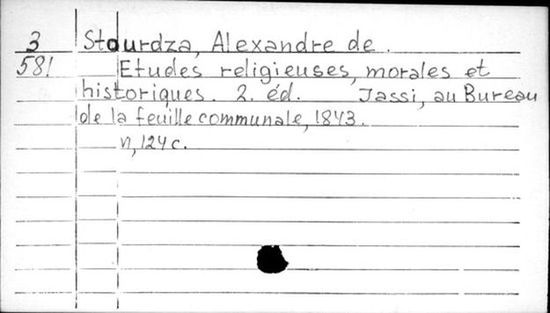 3 Stourdza, Alexandre de.
581 Etudes religieuses, morales et
historiques. 2. éd. Jassi, au Bureau
de la feuille communale, 1843.
n, 124 c.